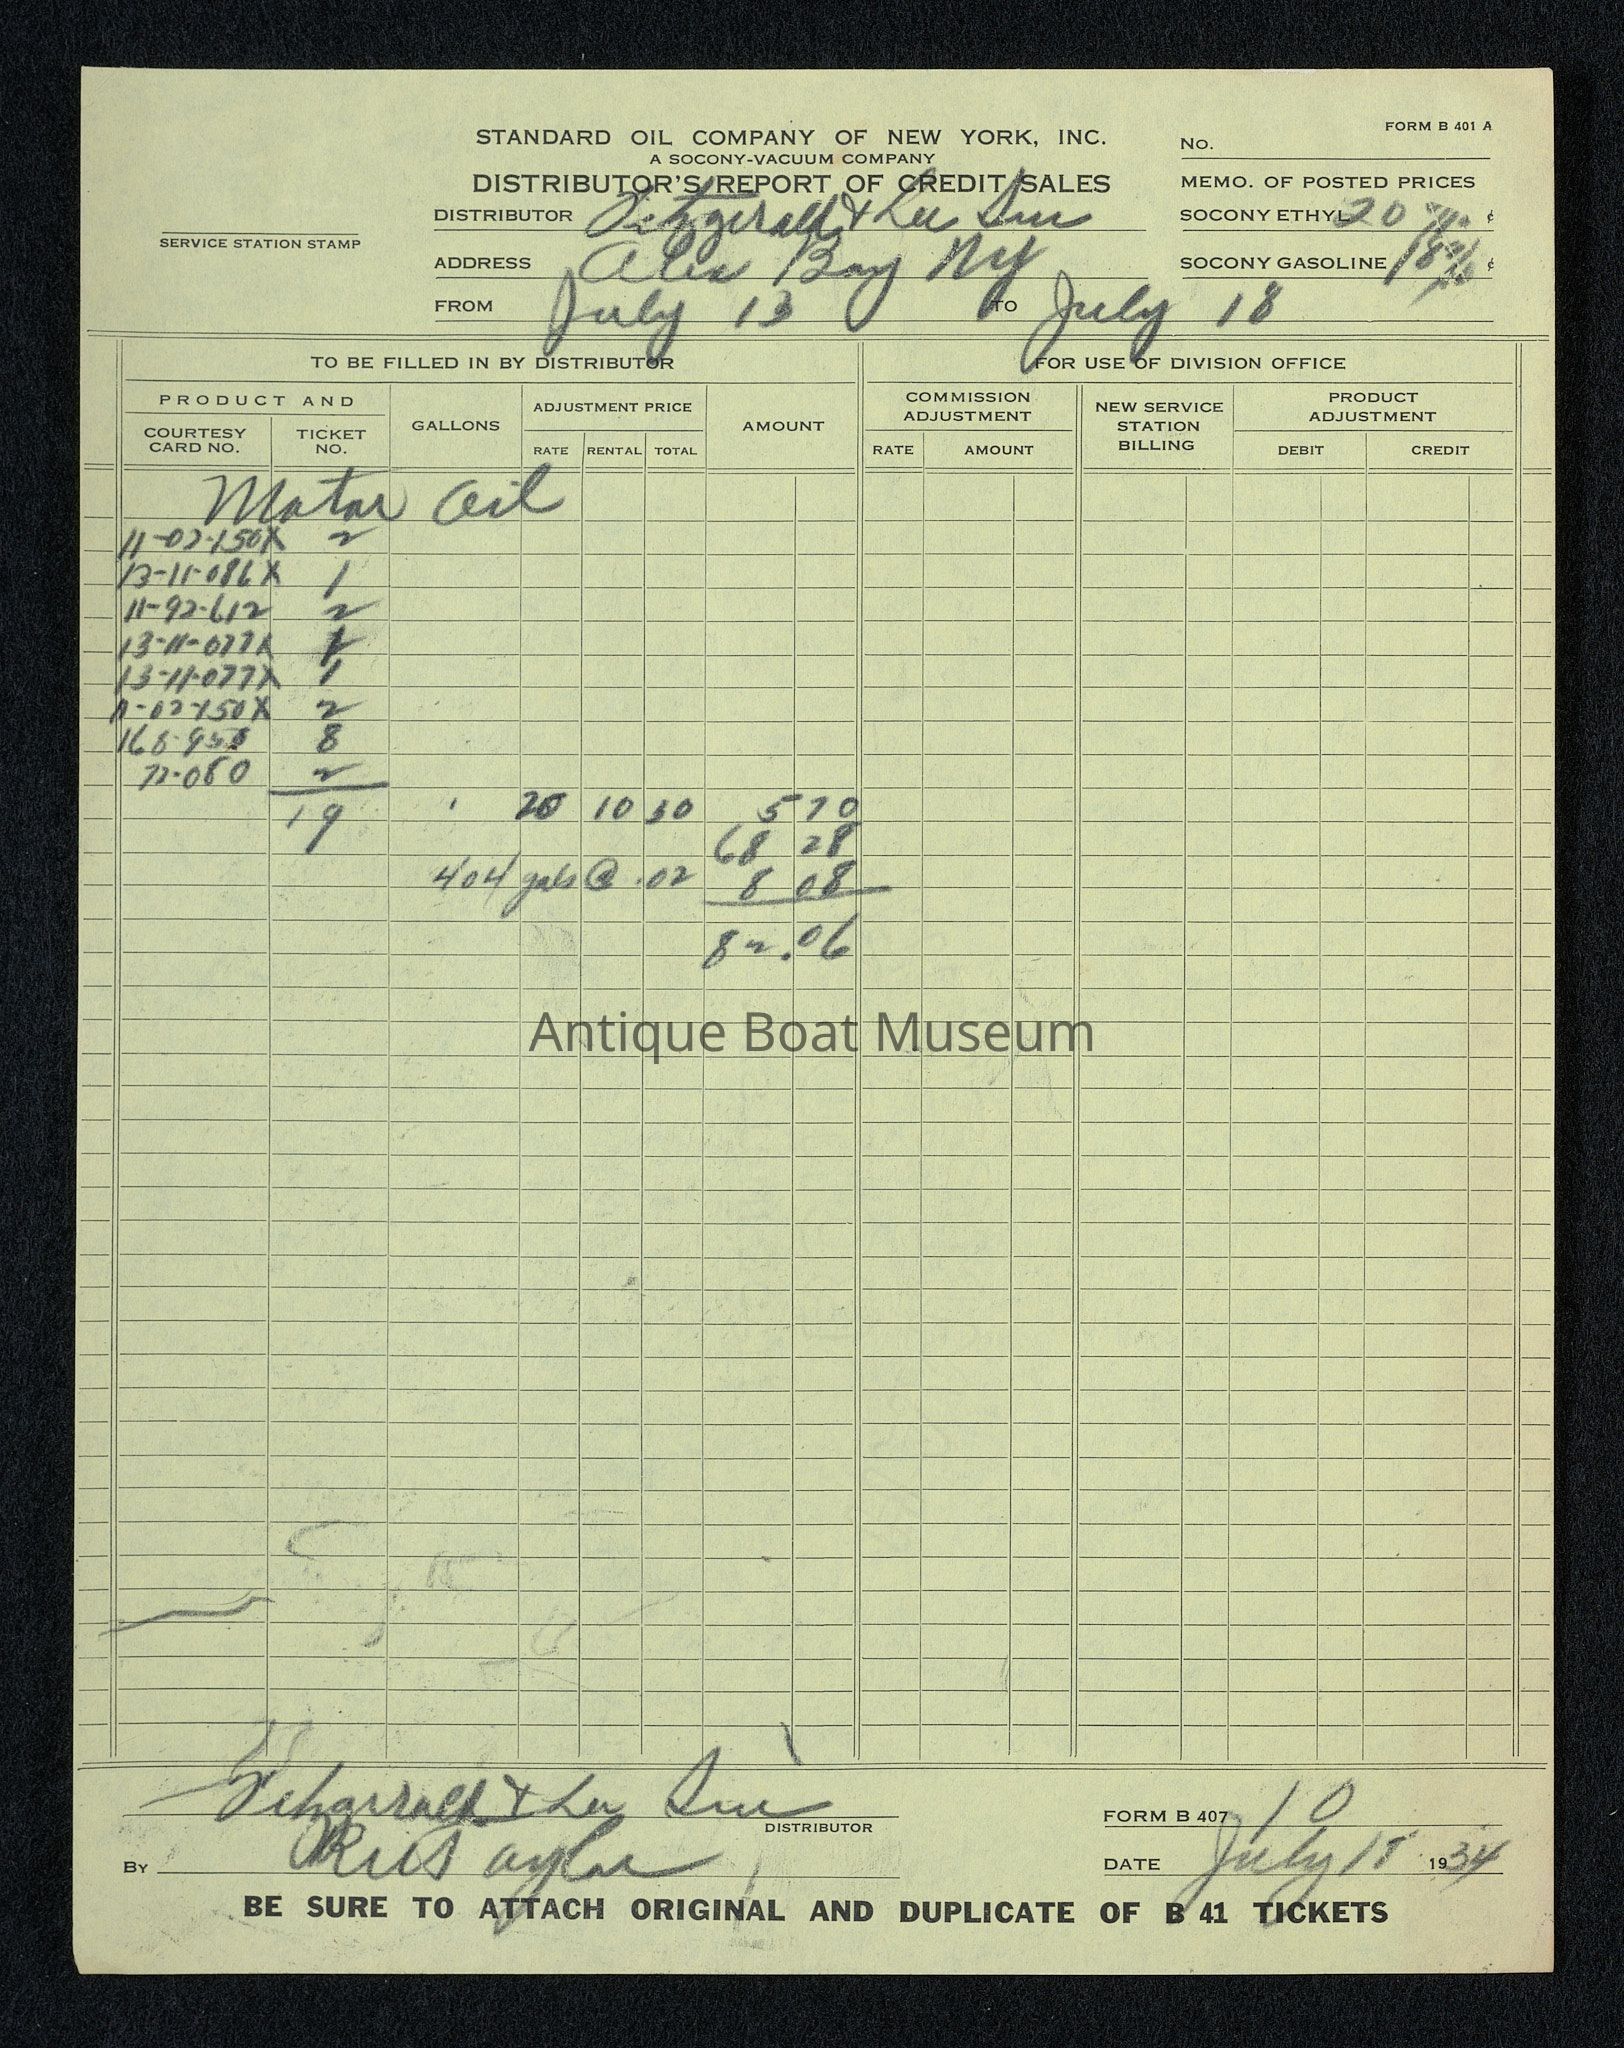 FORM B 401 A
STANDARD OIL COMPANY OF NEW YORK, INC.
No.
A SOCONY-VACUUM COMPANY
DISTRIBUTOR'S REPORT OF CREDIT SALES
MEMO. OF POSTED PRICES
DISTRIBUTOR Fitzgerald & Lee Inc
SOCONY ETHYL 20 ¢
SERVICE STATION STAMP
ADDRESS Alex Bay NY
SOCONY GASOLINE 18 ¢
FROM July 13 TO July 18
TO BE FILLED IN BY DISTRIBUTOR FOR USE OF DIVISION OFFICE
PRODUCT AND
COURTESY CARD NO. TICKET NO. GALLONS ADJUSTMENT PRICE RATE RENTAL TOTAL AMOUNT
COMMISSION ADJUSTMENT RATE AMOUNT NEW SERVICE STATION BILLING PRODUCT ADJUSTMENT DEBIT CREDIT
Motor Oil
11-02-150X 2
13-11-086X 1
11-92-612 2
13-11-077X 1
13-11-077X 1
11-02-150X 2
168-95 8
72-080 2
19 20 10 30 5 70
68 28
404 gals @ .02 8 08
82.06
Antique Boat Museum
Fitzgerald & Lee Inc
DISTRIBUTOR
FORM B 407 10
By Taylor
DATE July 18 1934
BE SURE TO ATTACH ORIGINAL AND DUPLICATE OF B 41 TICKETS